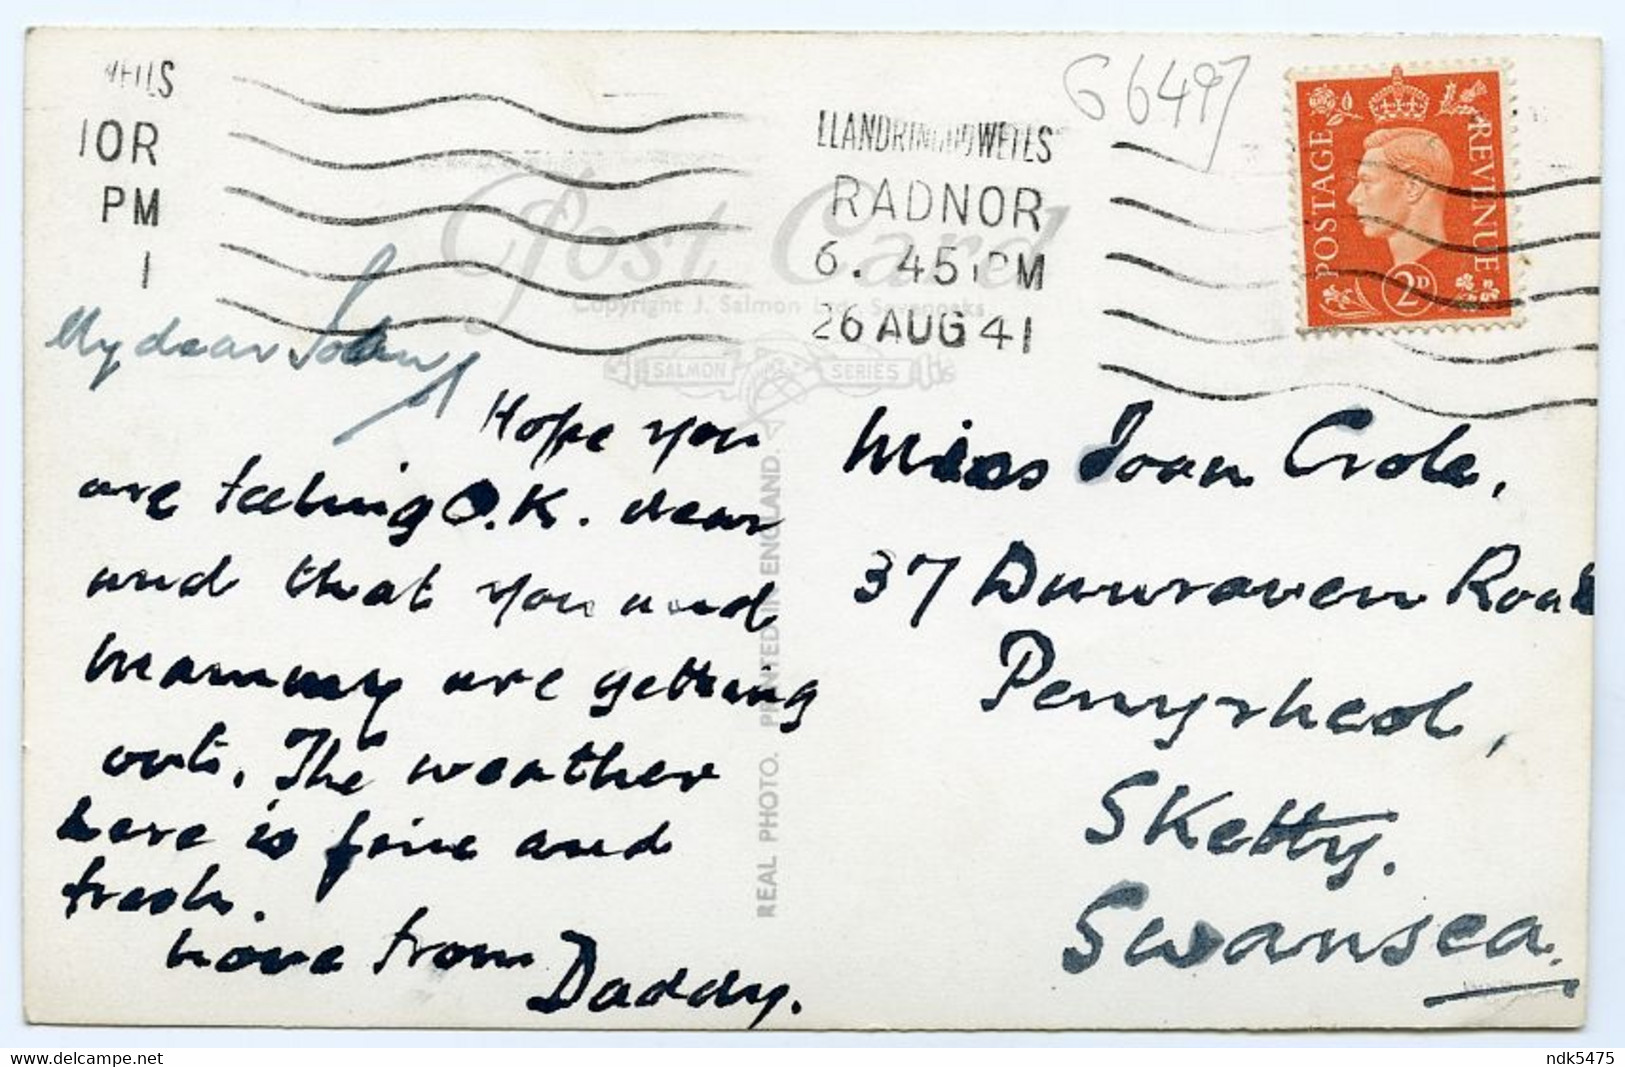 WELLS
NOR
PM
1
LLANDRINDOD WELLS
RADNOR
6. 45 PM
26 AUG 41
G6497
POSTAGE
REVENUE
2D
Post Card
Copyright J. Salmon Ltd., Sevenoaks
SALMON SERIES
REAL PHOTO. PRINTED IN ENGLAND.
My dear
Hope you
are feeling O.K. dear
and that you and
Mammy are getting
out. The weather
here is fine and
fresh.
Love from
Daddy.
Miss Joan Crole,
37 Dunraven Road
Penyrheol,
Sketty.
Swansea.
www.delcampe.net
ndk5475